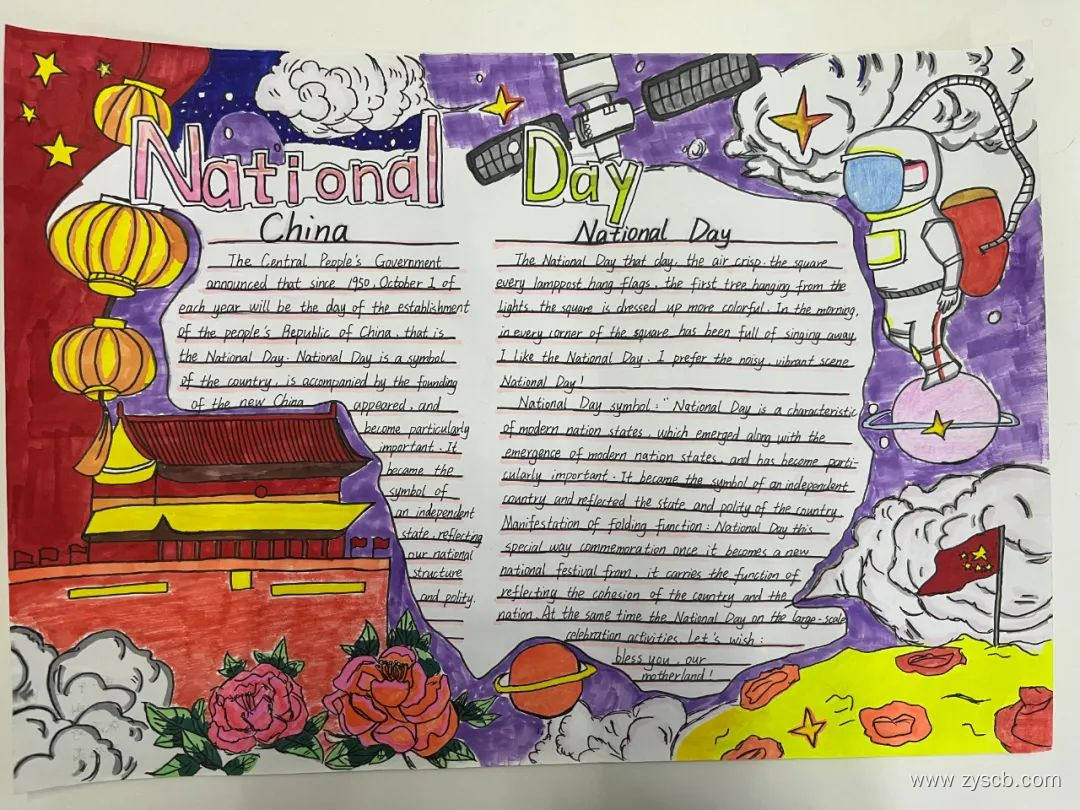 National Day
China
The Central People's Government
announced that since 1950, October 1 of
each year will be the day of the establishment
of the people's Republic of China, that is
the National Day. National Day is a symbol
of the country, is accompanied by the founding
of the new China appeared, and
become particularly
important. It
became the
symbol of
an independent
state, reflecting
our national
structure
and polity.
National Day
The National Day that day, the air crisp. the square
every lamppost hang flags, the first tree hanging from the
lights, the square is dressed up more colorful. In the morning,
in every corner of the square has been full of singing away.
I like the National Day. I prefer the noisy, vibrant scene
National Day!
National Day symbol: "National Day is a characteristic
of modern nation states, which emerged along with the
emergence of modern nation states, and has become parti-
cularly important. It became the symbol of an independent
country and reflected the state and polity of the country.
Manifestation of folding function: National Day this
special way commemoration once it becomes a new
national festival from, it carries the function of
reflecting the cohasion of the country and the
nation. At the same time the National Day on the large-scale
celebration activities. Let's wish:
bless you, our
motherland!
www.zyscb.com